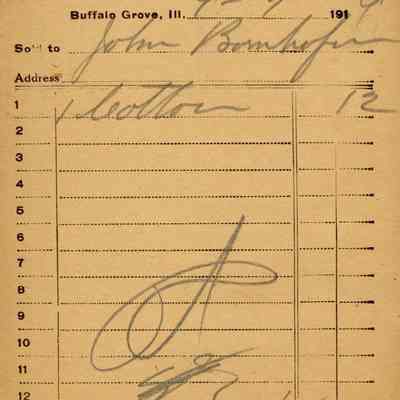 Buffalo Grove, Ill. 191
Sold to John Bornhofen
Address
1 1 Cotton 12
2
3
4
5
6
7
8
9
10
11
12